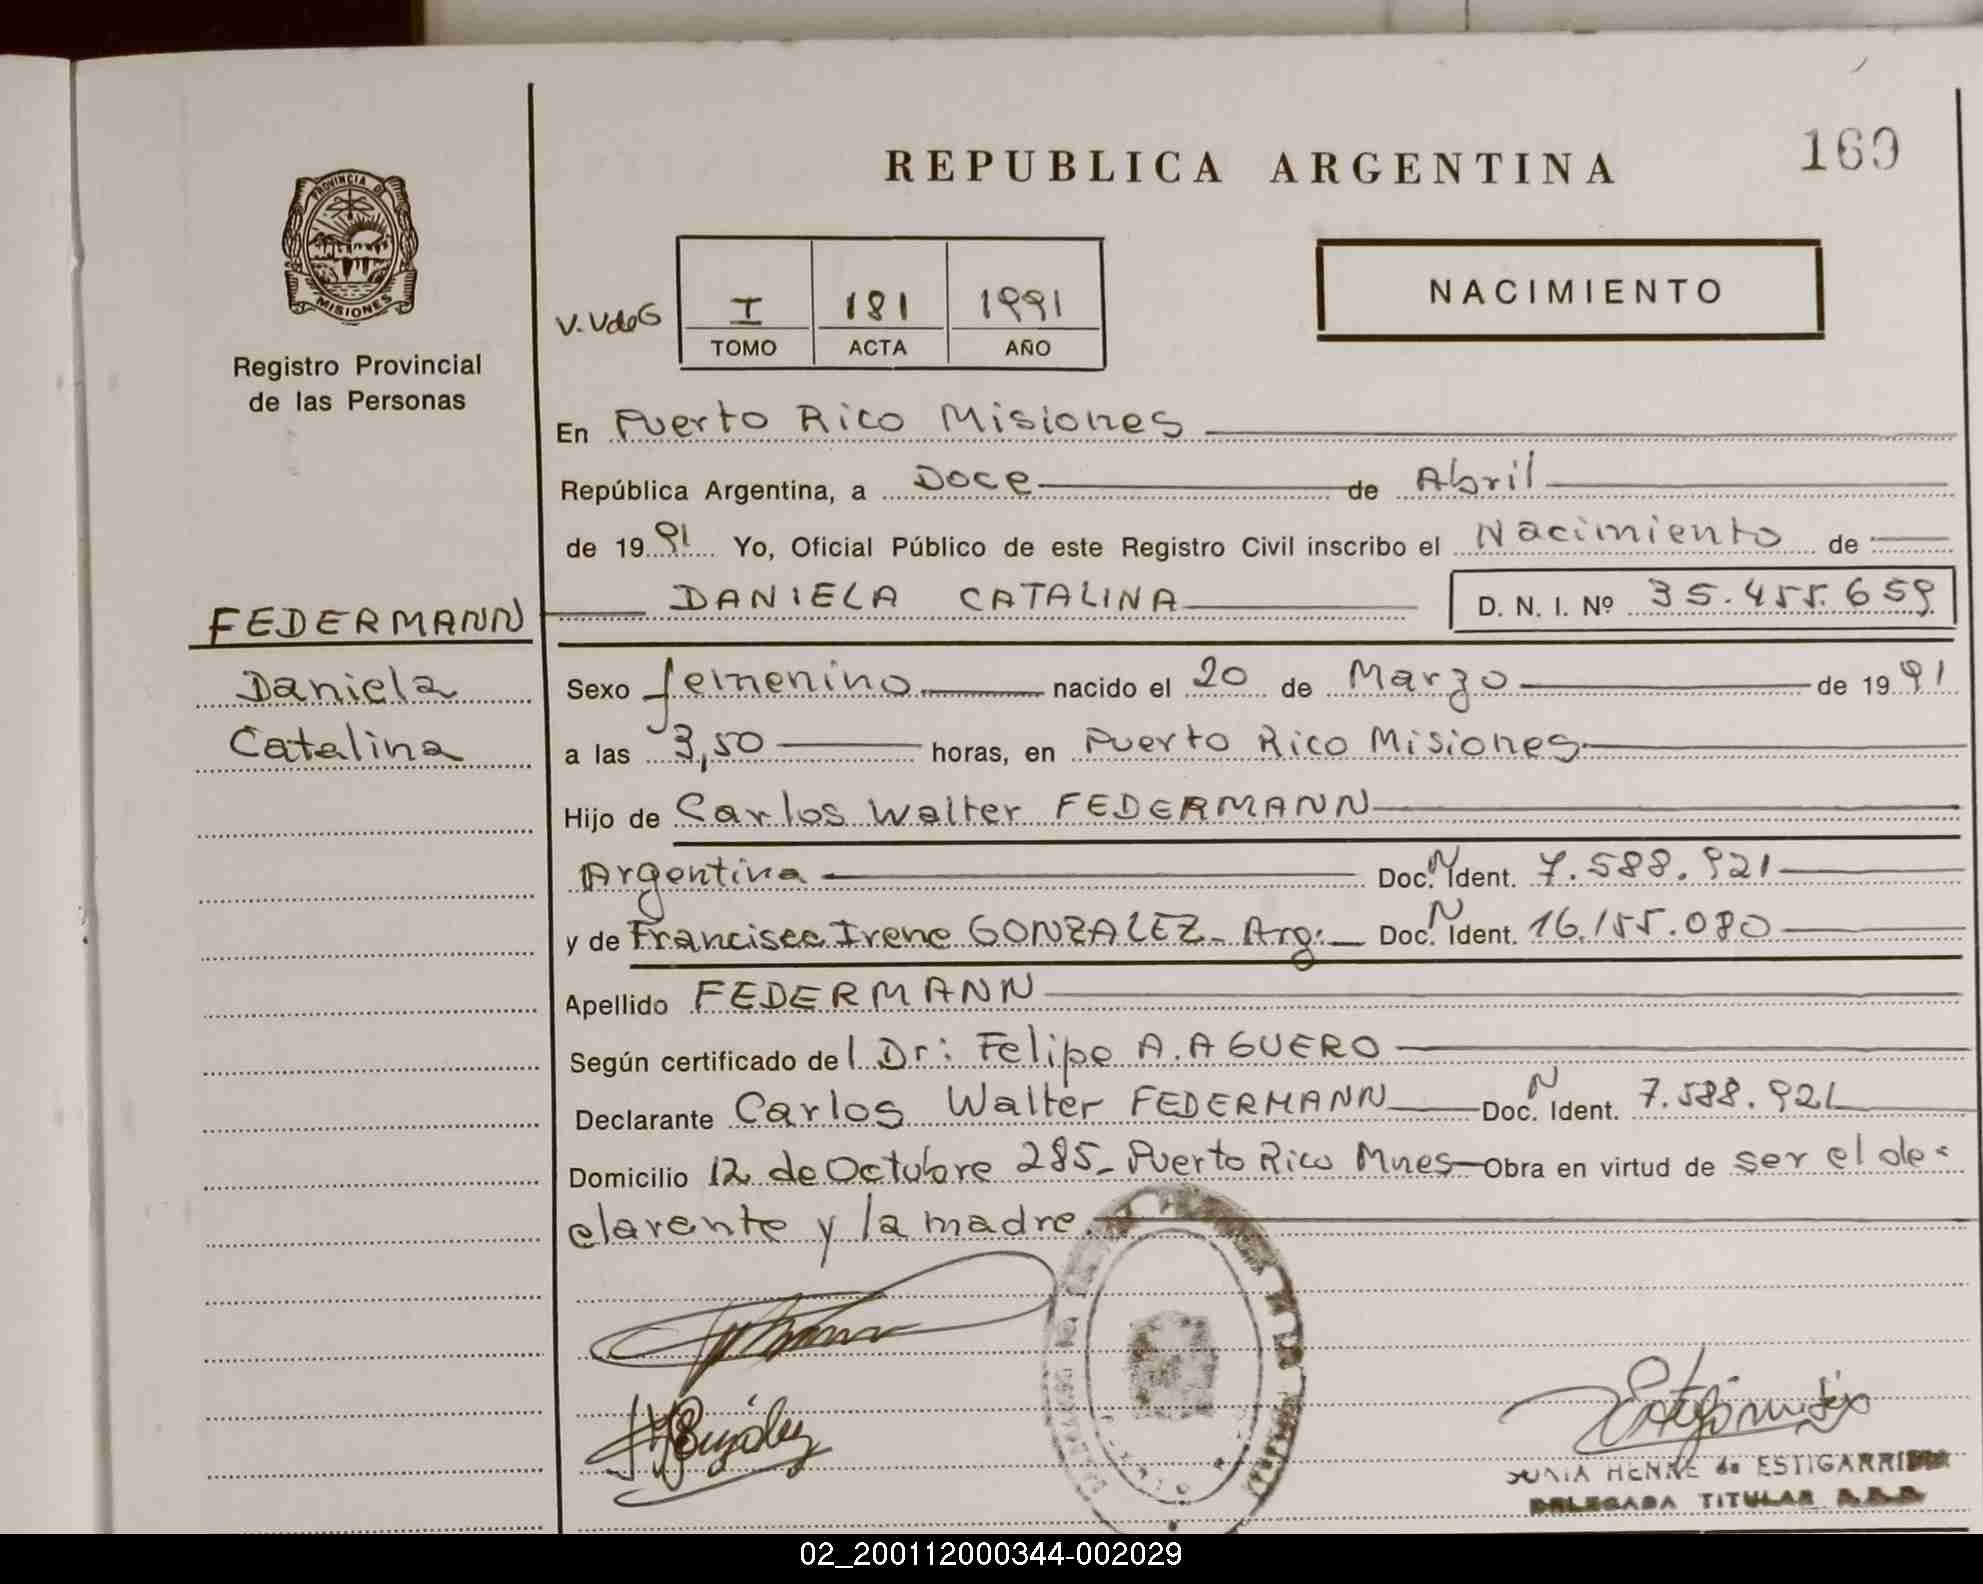 REPUBLICA ARGENTINA
169
PROVINCIA DE
MISIONES
Registro Provincial
de las Personas
V. VdeG
I 181 1991
TOMO ACTA AÑO
NACIMIENTO
En Puerto Rico Misiones
República Argentina, a Doce de Abril
de 1991 Yo, Oficial Público de este Registro Civil inscribo el Nacimiento de
DANIELA CATALINA D. N. I. Nº 35.455.659
FEDERMANN
Daniela
Catalina
Sexo femenino nacido el 20 de Marzo de 1991
a las 3,50 horas, en Puerto Rico Misiones
Hijo de Carlos Walter FEDERMANN
Argentina Doc. N Ident. 7.588.921
y de Francisca Irene GONZALEZ- Arg. Doc. N Ident. 16.155.080
Apellido FEDERMANN
Según certificado del Dr: Felipe A. AGUERO
Declarante Carlos Walter FEDERMANN Doc. N Ident. 7.588.921
Domicilio 12 de Octubre 285- Puerto Rico Mnes Obra en virtud de ser el de-
clarente y la madre.
HENKE de ESTIGARRIBIA
DELEGADA TITULAR
02_200112000344-002029